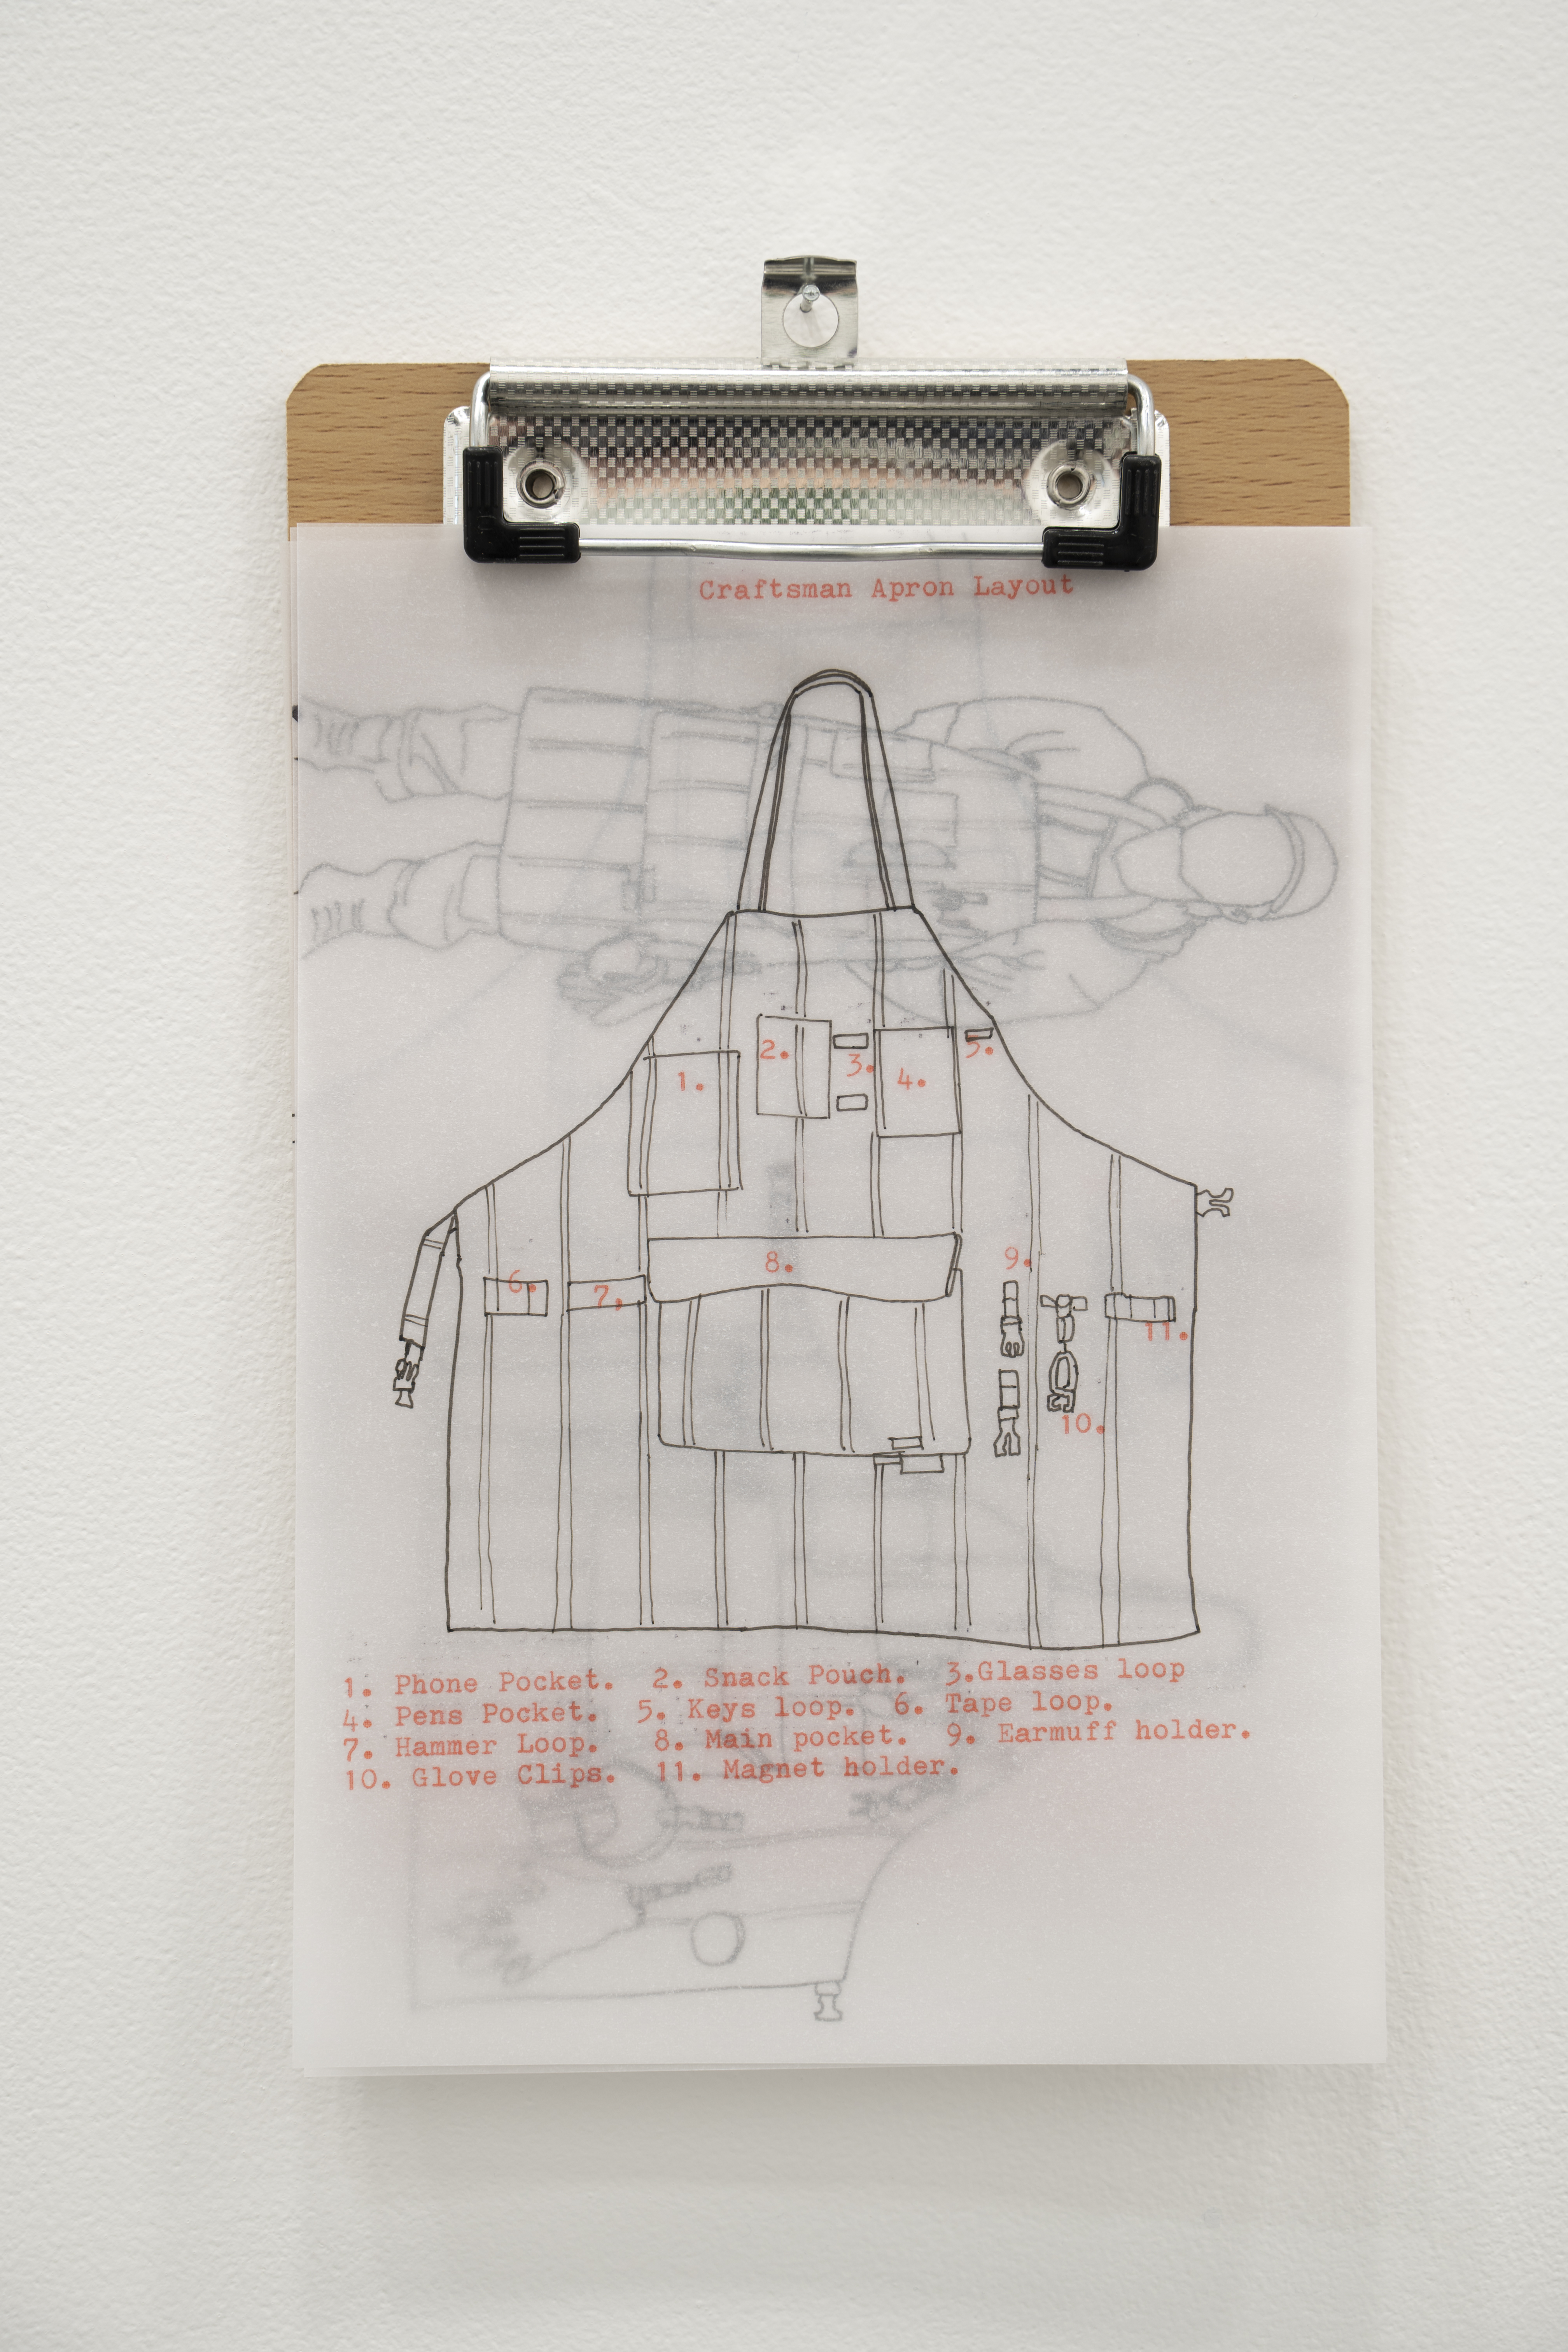 Craftsman Apron Layout
1.
2.
3.
4.
5.
6.
7,
8.
9.
10.
11.
1. Phone Pocket. 2. Snack Pouch. 3.Glasses loop
4. Pens Pocket. 5. Keys loop. 6. Tape loop.
7. Hammer Loop. 8. Main pocket. 9. Earmuff holder.
10. Glove Clips. 11. Magnet holder.